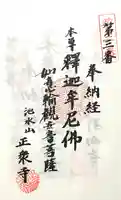 第三番
奉納経
本尊 釋迦牟尼佛
如意輪観世音菩薩
池水山
正衆寺